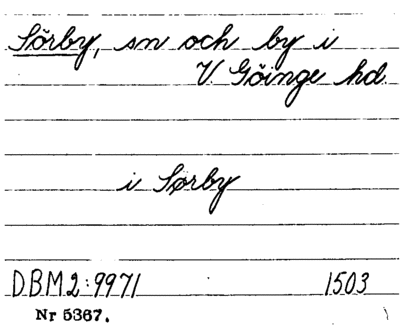 Sörby, sn och by i
V. Göinge hd.
i Sørby
DBM2:9971 1503
Nr 5367.